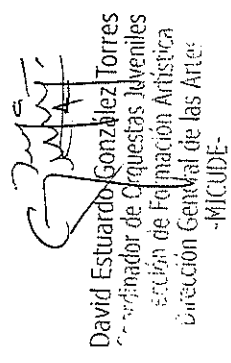 David Estuardo González Torres
Coordinador de Orquestas Juveniles
de Formación Artística
Dirección General de las Artes
-MICUDE-